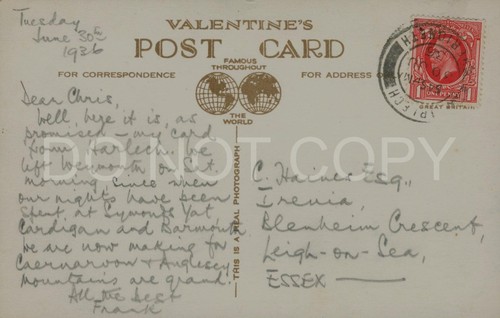 Tuesday
June 30th
1936
VALENTINE'S
POST CARD
FAMOUS
THROUGHOUT
THE
WORLD
FOR CORRESPONDENCE
FOR ADDRESS ON
HARLECH
ONE PENNY
GREAT BRITAIN
Dear Chris,
Well, here it is, as
promised – my card
from Harlech. We
left Weymouth on Sat.
morning since when
our nights have been
spent at Symonds Yat
Cardigan and Barmouth
We are now making for
Caernarvon & Anglesey
Mountains are grand.
All the best
Frank
THIS IS A REAL PHOTOGRAPH
C. Haines Esq.,
Irenia,
Blenheim Crescent,
Leigh-on-Sea,
ESSEX
DO NOT COPY